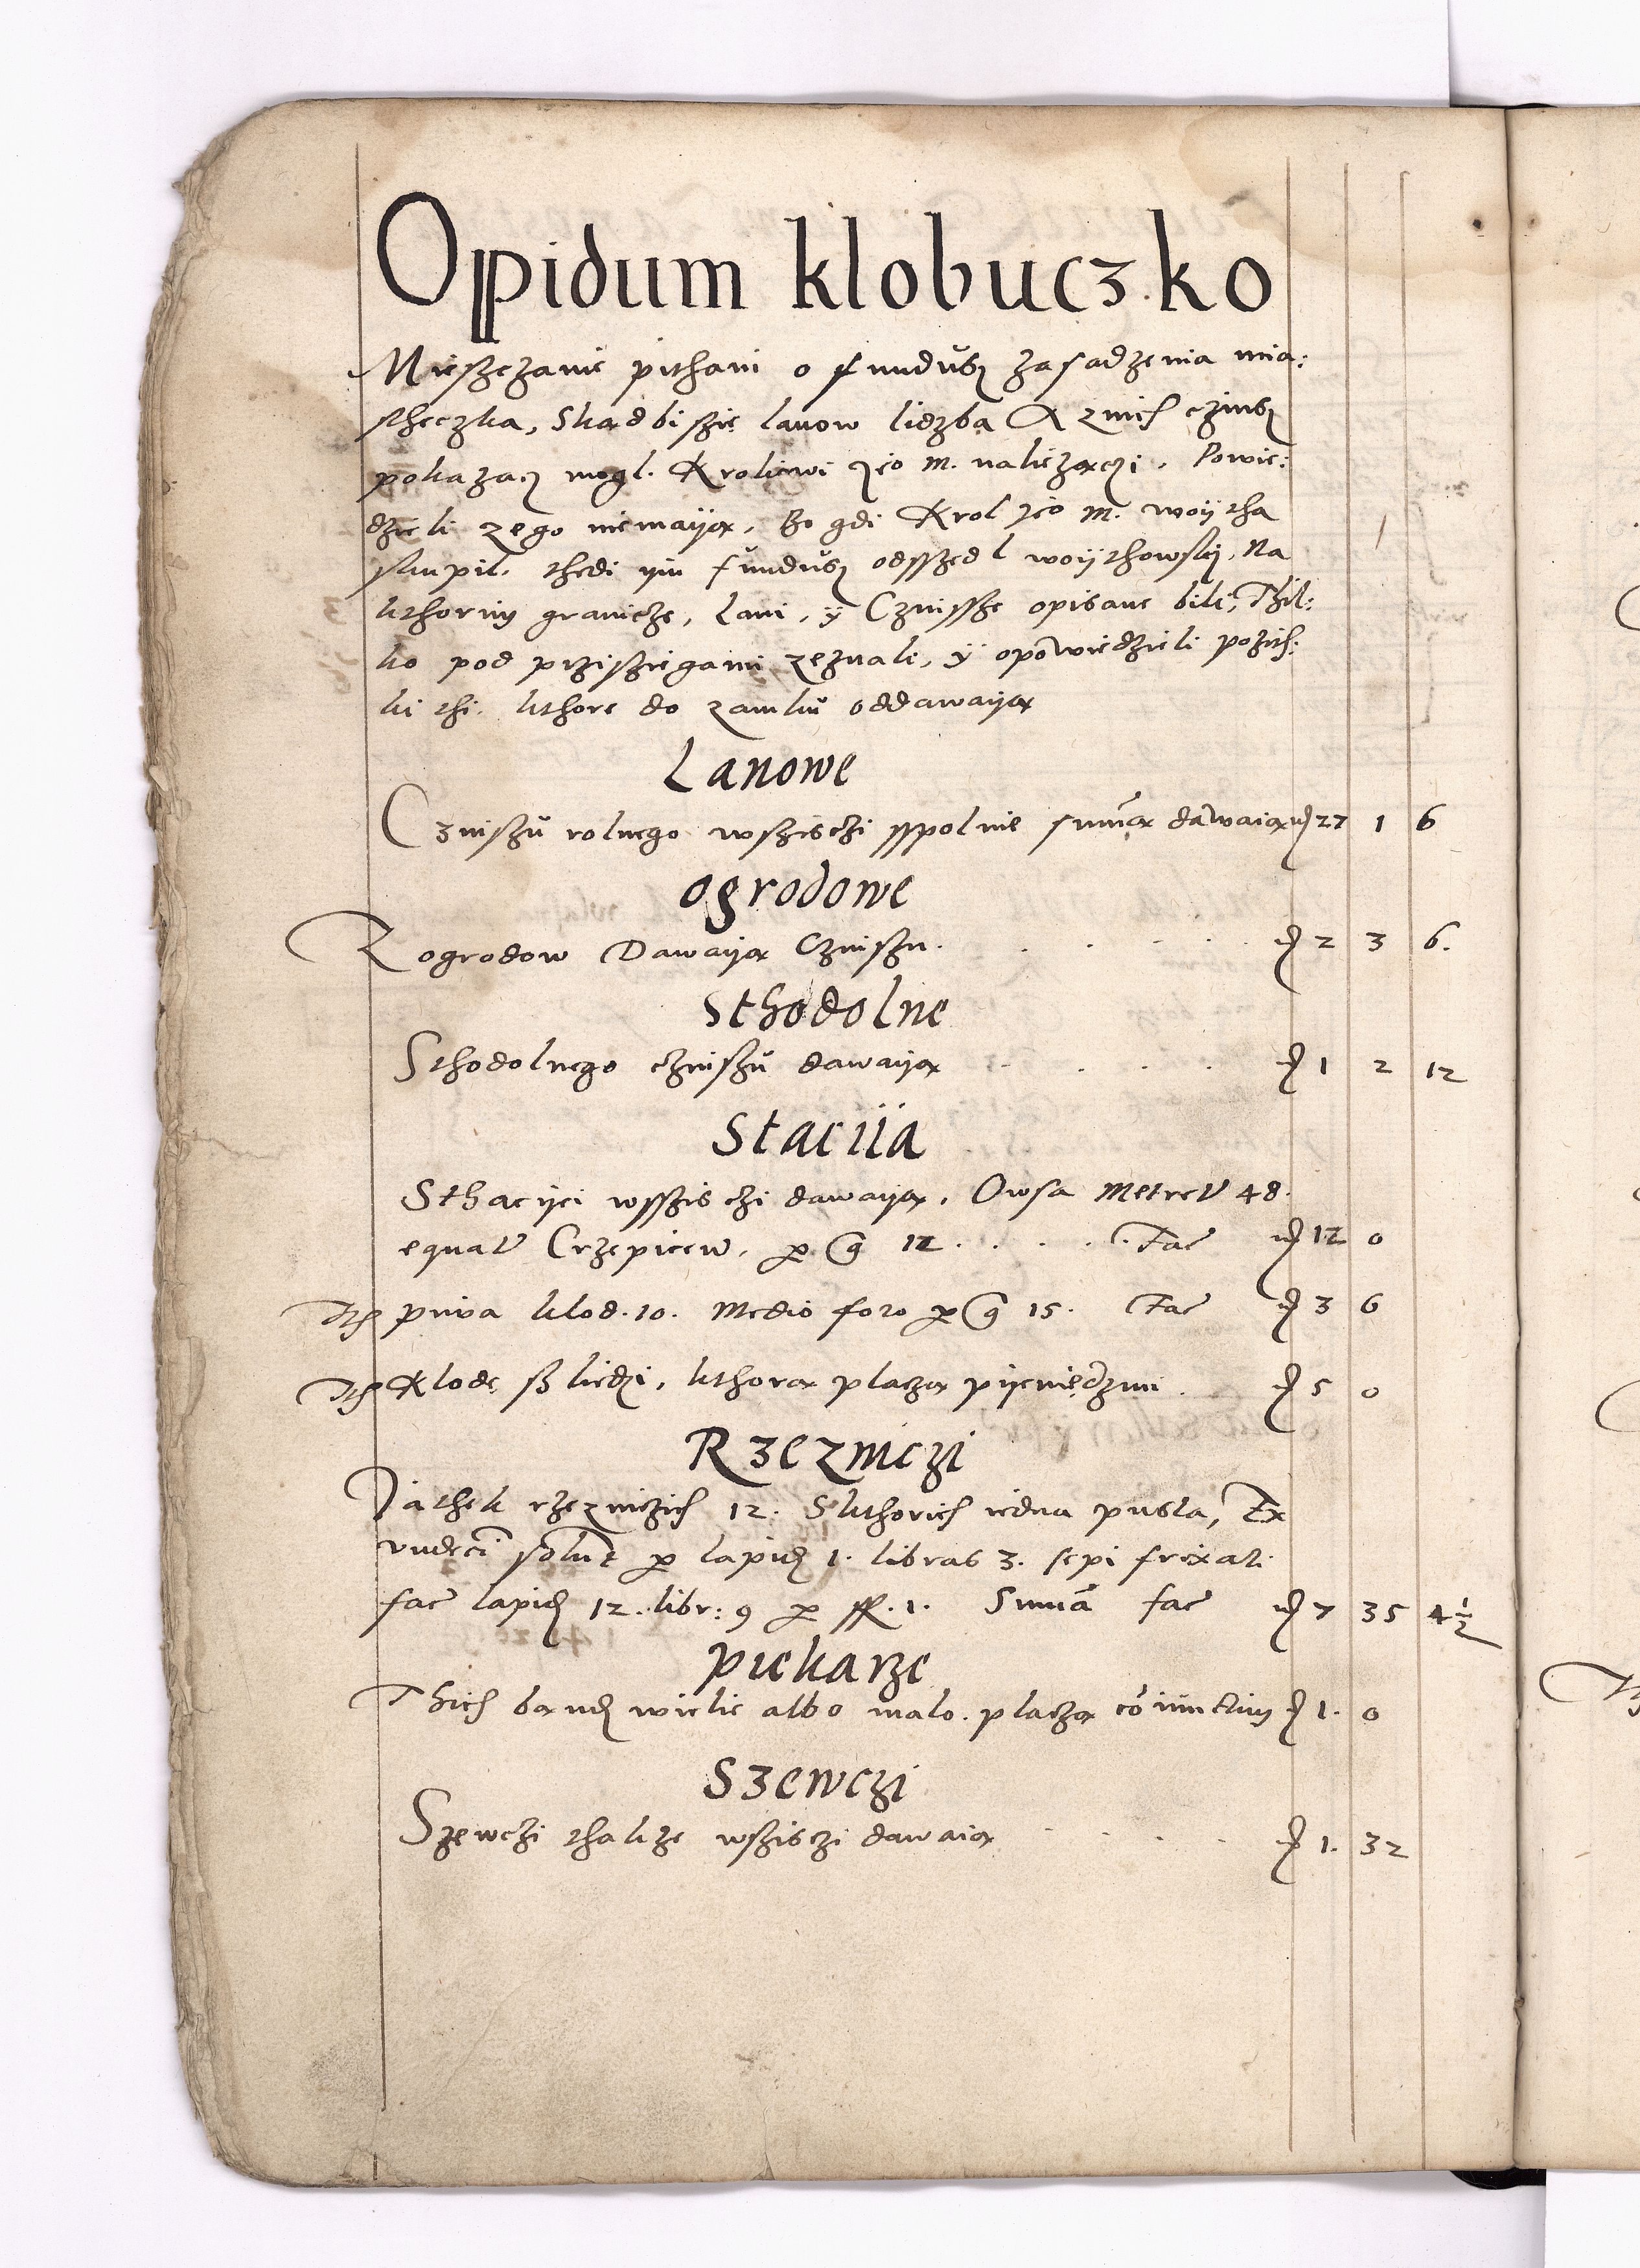 Oppidum klobuczko
Miesczanie pithani o fundusz zasadzenia mia:
steczka, Skadbi szie lanow liczba A z nich czinsz
pokazacz mogl. Krolewi Jeo M. nalezaczi. Powie:
dzieli ze go niemaija, Bo gdi Krol Jeo M. woijtha
skupil, thedi ijm fundusz odsszedl woijthowski, Na
kthorim granicze, Lani, ij Cznissze opisane bili, Thil:
ko pod przisziegami zeznali, ij opowiedzieli pozith:
ki thi, kthore do zamku oddawaija
Lanowe
Czniszu rolnego wszisczi sspolnie summa dawaia fl 27 1 6
ogrodowe
Z ogrodow Dawaija Czniszu . . . . . fl 2 3 6.
Sthodolne
Sthodolnego czniszu dawaija . . . . fl 1 2 12
Staciia
Sthacijei wsszisczi dawaija, Owsa Metret 48.
equat Crzepicen, per g 12 . . . . Fac fl 12 0
Ith piwa klod. 10. Medio foro per g 15. Fac fl 3 6
Ith Klode szliedzi, kthora placza pijeniedzmi . fl 5 0
Rzezniczi
Jathek rzezniczich 12. S kthorich iedna pusta, Ex
undeci solunt per lapid 1. libras 3. sepi frixati.
fac lapid 12. libr: 9 per ff. 1. Summa fac fl 7 35 4½
piekarze
Thich band wiele albo malo. placza coniunctim fl 1. 0
Szewczi
Szewczi thakze wszisczi dawaia . . . . fl 1. 32